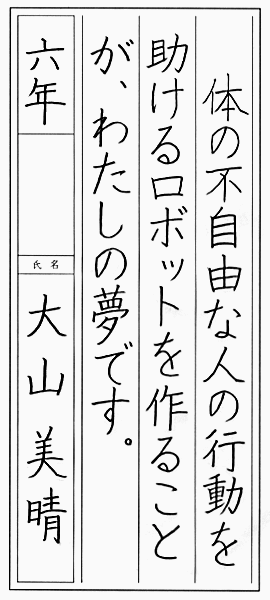 体の不自由な人の行動を
助けるロボットを作ること
が、わたしの夢です。
六年
氏名
大山美晴